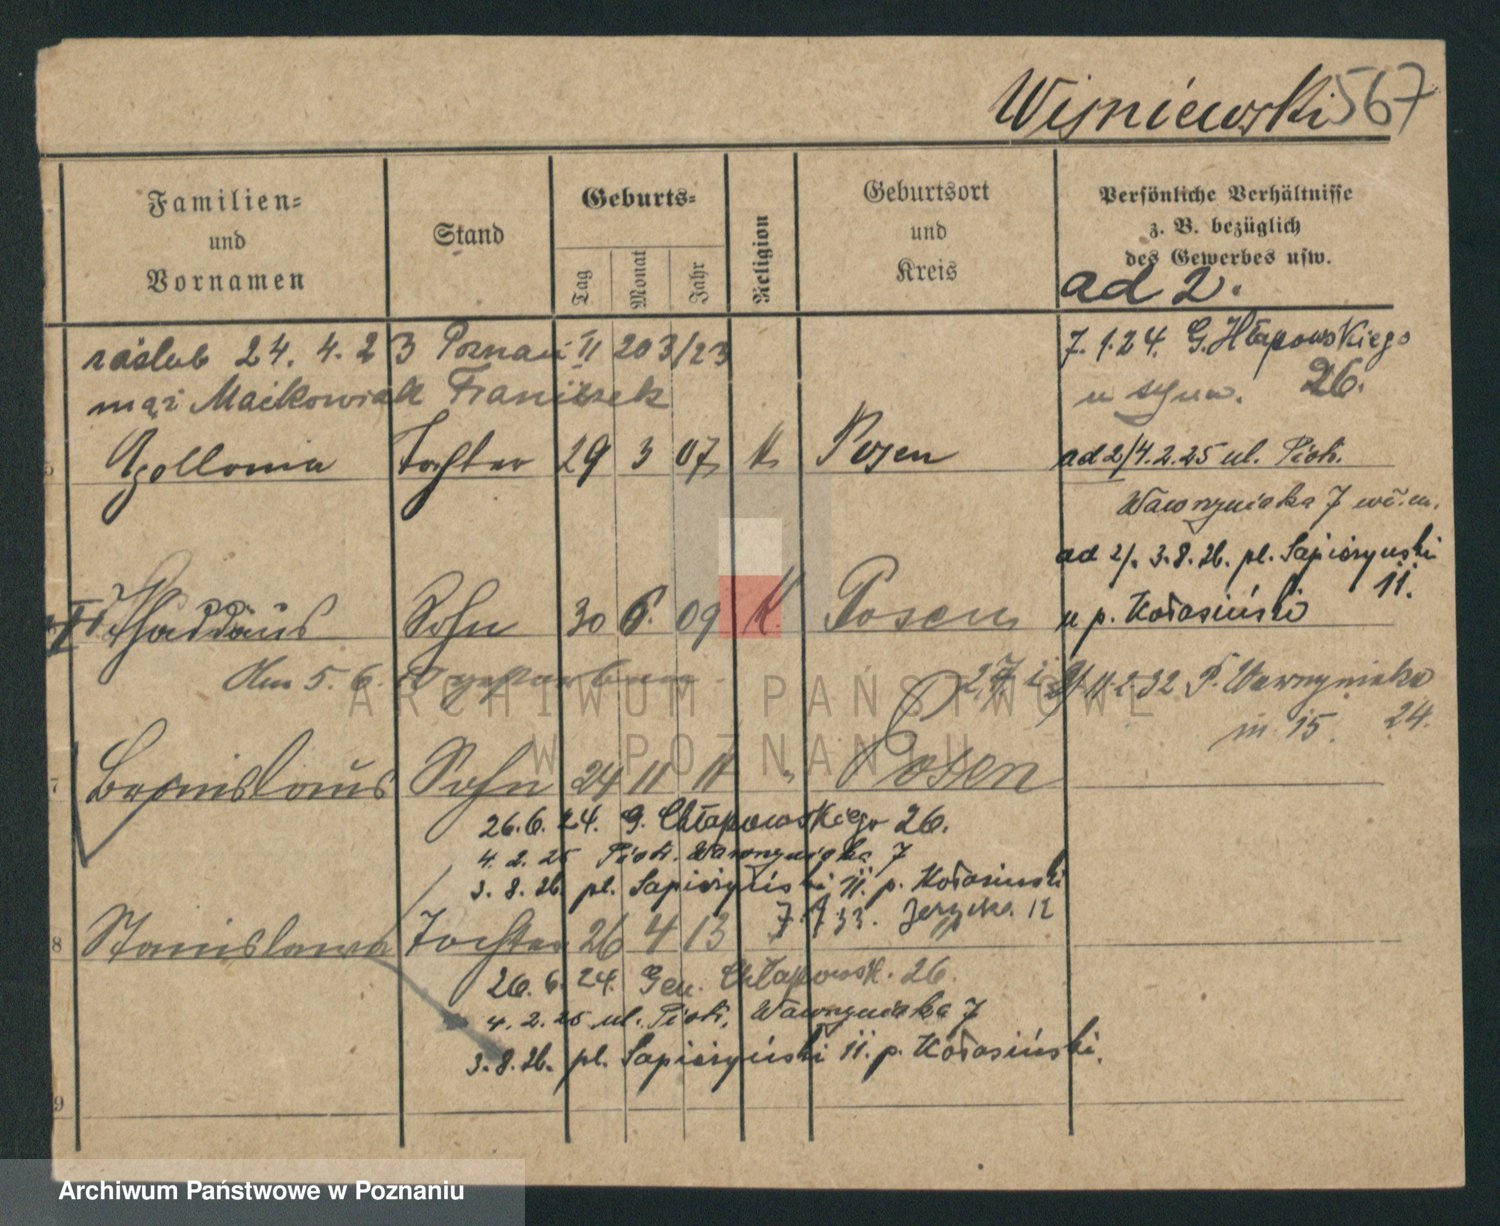 Wiśniewski 567
Familien-
und
Vornamen
Stand
Geburts-
Tag
Monat
Jahr
Religion
Geburtsort
und
Kreis
Persönliche Verhältnisse
z. B. bezüglich
des Gewerbes usw.
ad 2.
zaślub 24. 4. 23 Poznań II 203/23
mąż Maćkowiak Franiszek
7. 1. 24. G. Hłapowskiego
26.
Apollonia Tochter 29 3 07 K Posen
ad 2/4. 2. 25 ul. Piotr.
Wawrzyniaka 7
ad 2/. 3. 8. 26. pl. Sapieżyński
11.
u p. Kołasiński
Thaddäus Sohn 30 6. 09 K. Posen
Am 5. 6.
11. 2. 32 P. Wawrzyniaka
m 15. 24.
7 Bronislaus Sohn 24 11 11 " Posen
26. 6. 24. G. Chłapowskiego 26.
4. 2. 25 Piotr. Wawrzyniaka 7
3. 8. 26. pl. Sapieżyński 11. p. Kołasiński
8 Stanislawa Tochter 26 4 13
7. 7 33. Jeżycka 12
26. 6. 24. Gen. Chłapowsk. 26.
4. 2. 25 ul. Piotr. Wawrzyniaka 7
3. 8. 26. pl. Sapieżyński 11. p. Kołasiński.
9
ARCHIWUM PAŃSTWOWE
W POZNANIU
Archiwum Państwowe w Poznaniu